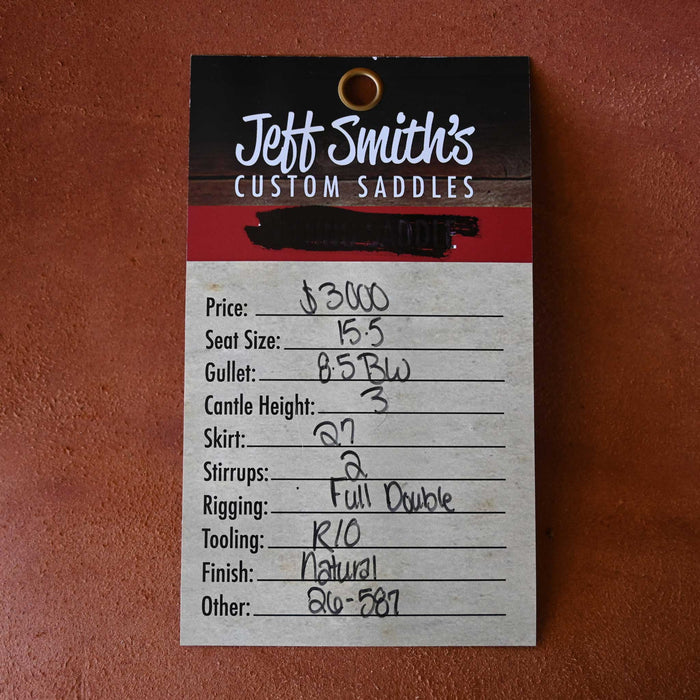 Jeff Smith's
CUSTOM SADDLES
Price: $3000
Seat Size: 15.5
Gullet: 8.5 BW
Cantle Height: 3
Skirt: 27
Stirrups: 2
Rigging: Full Double
Tooling: R/O
Finish: Natural
Other: 26-587